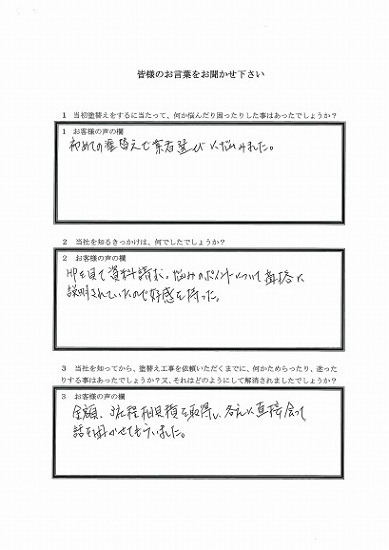 皆様のお言葉をお聞かせ下さい
1 当初塗替えをするに当たって、何か悩んだり困ったりした事はあったでしょうか？
1 お客様の声の欄
初めての塗替えで業者選びに悩みました。
2 当社を知るきっかけは、何でしたでしょうか？
2 お客様の声の欄
HPを見て資料請求。悩みのポイントについて直接に
説明されていたので好感を持った。
3 当社を知ってから、塗替え工事を依頼いただくまでに、何かためらったり、迷った
りする事はあったでしょうか？又、それはどのようにして解消されましたでしょうか？
3 お客様の声の欄
金額、3社程相見積を取得し、各々に直接会って
話を聞かせてもらいました。